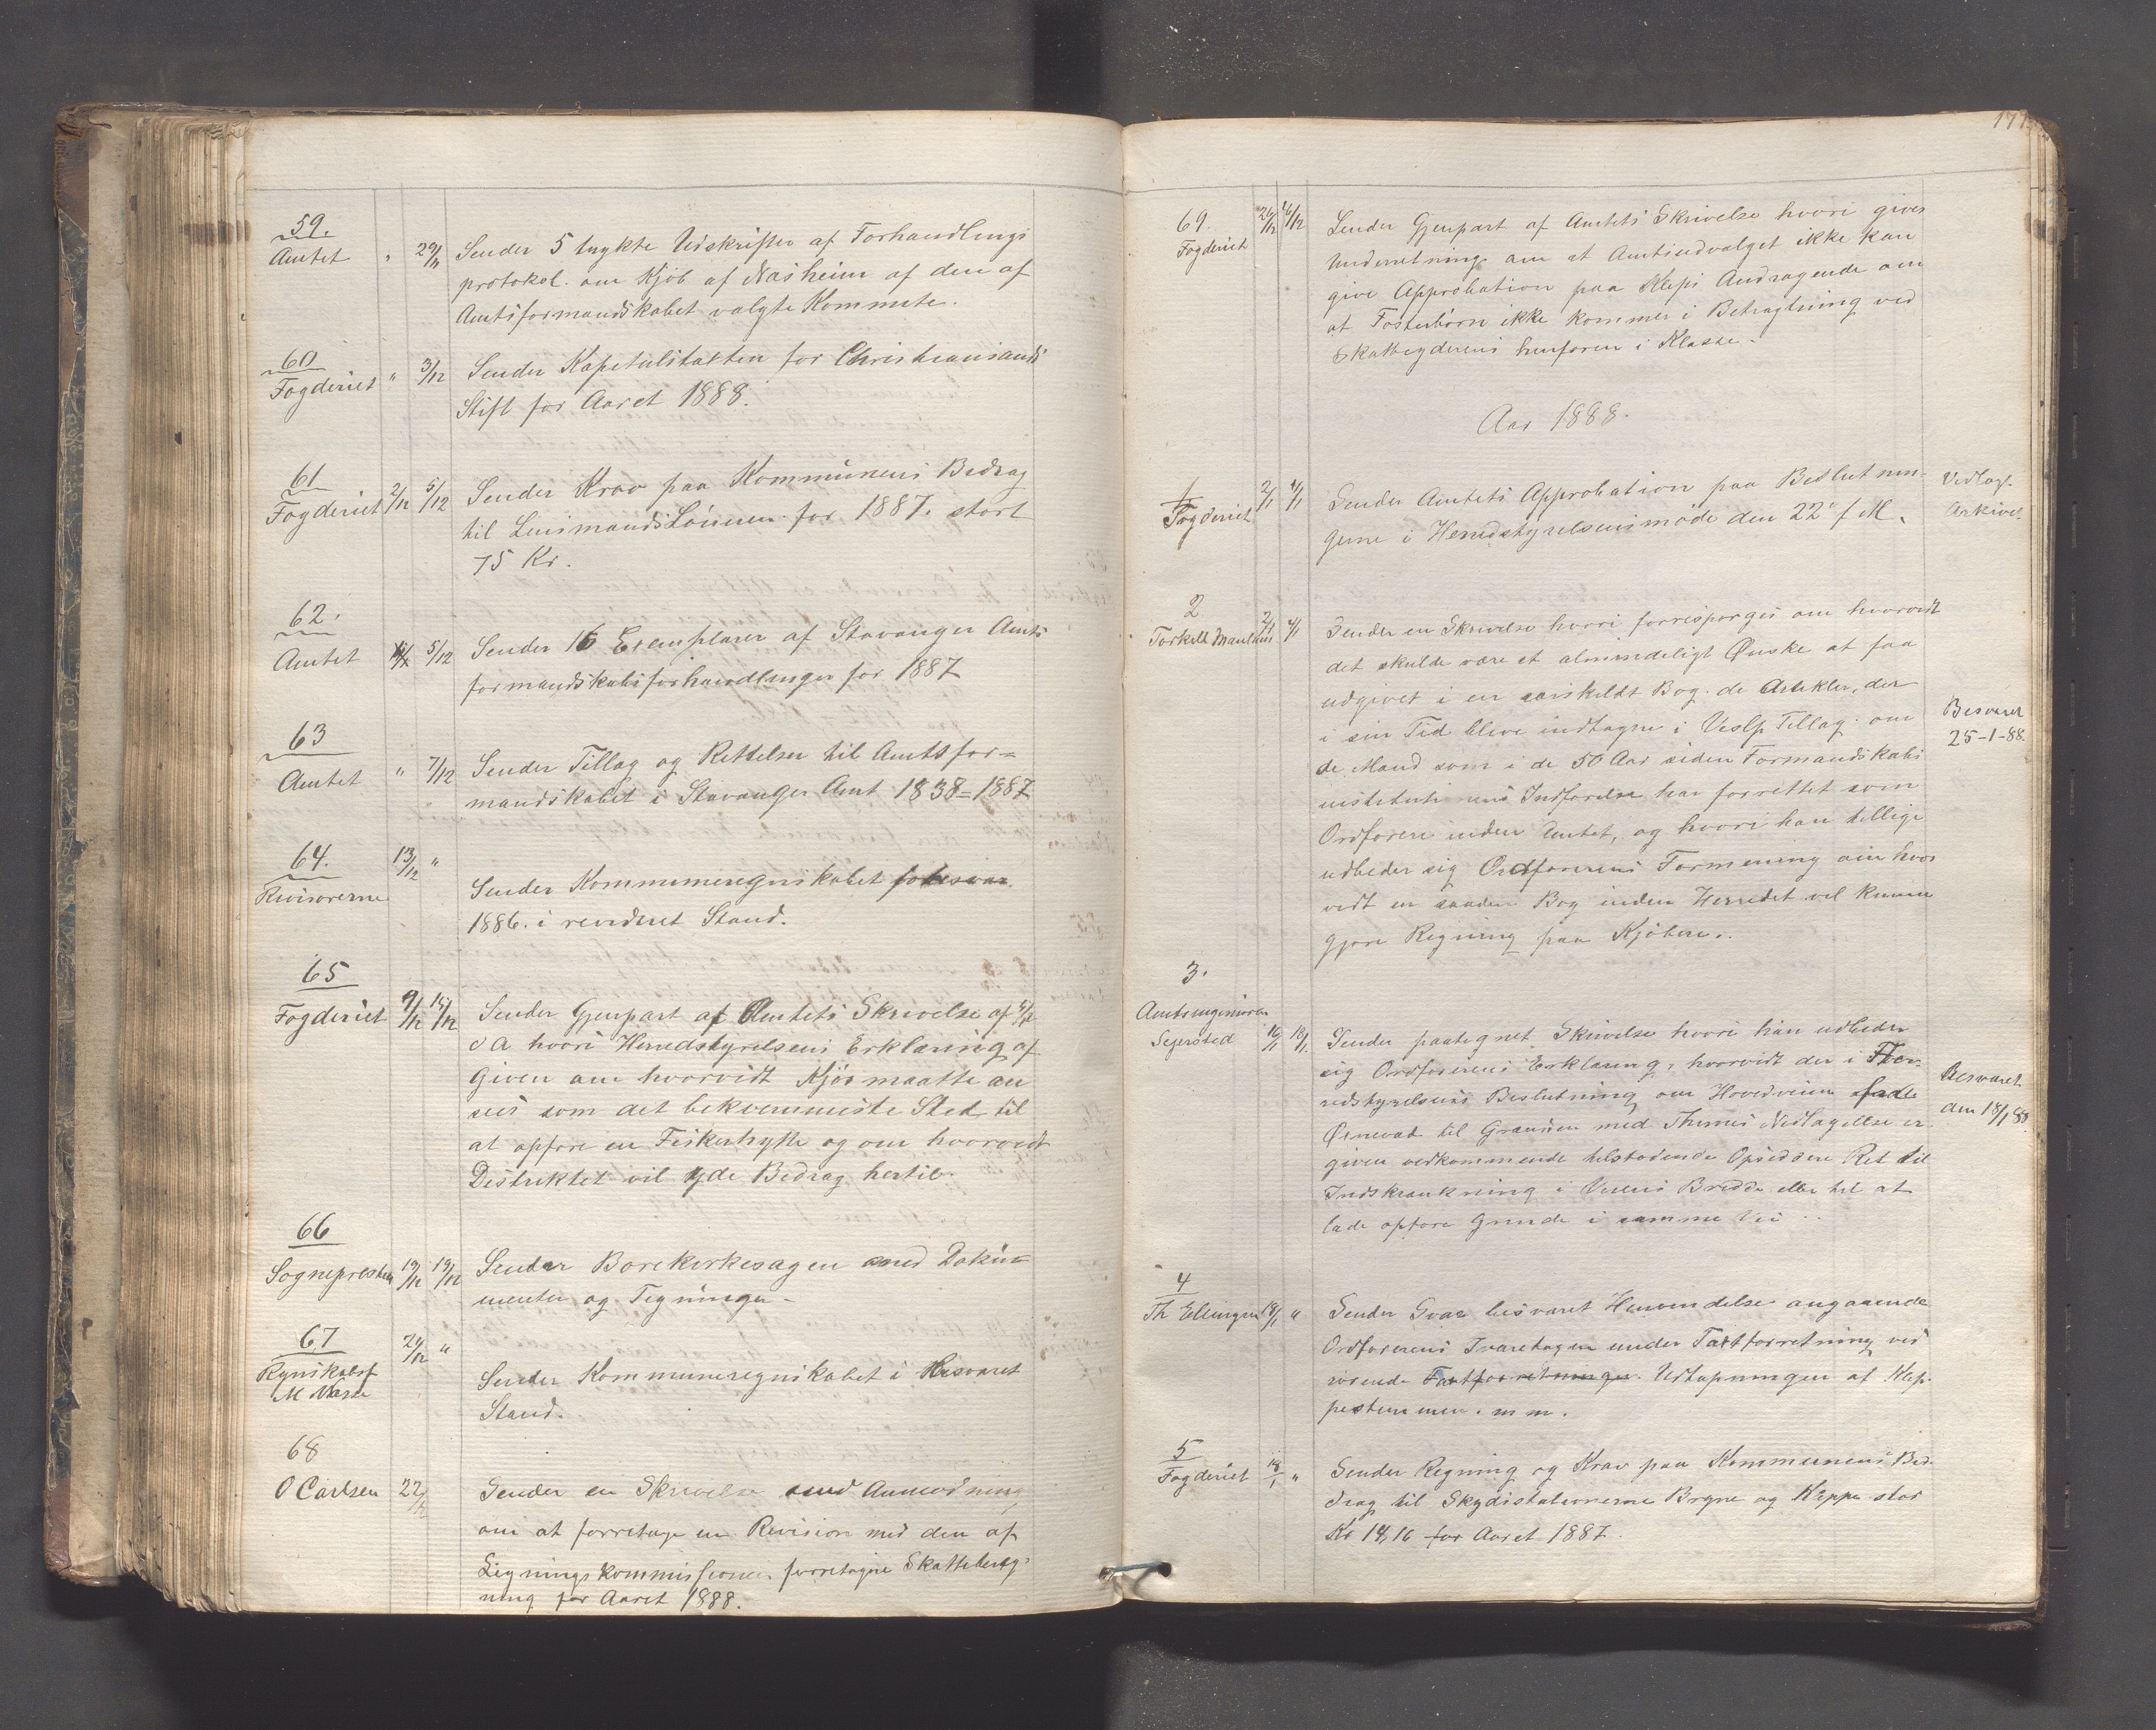 59.
Amtet " 29/11 Sender 5 trykte Udskrifter af Forhandlings
protokol. om Kjöb af Næsheim af den af
Amtsformandskabet valgte Kommite.
60
Fogderiet " 3/12 Sender Kapitulstakten for Christiansands
Stift for Aaret 1888.
61
Fogderiet 2/12 5/12 Sender Krav paa Kommunens Bidrag
til Lensmands Lönnen for 1887. stort
75 Kr.
62.
Amtet 5/12 Sender 16 Exemplarer af Stavanger Amts
formandskabsforhandlinger for 1887
63
Amtet " 7/12 Sender Tillæg og Rettelser til Amtsfor=
mandskabet i Stavanger Amt 1838=1887
64.
Revisorerne 13/12 " Sender Kommuneregnskabet
1886. i revideret Stand.
65
Fogderiet 9/12 14/12 Sender Gjenpart af Amtets Skrivelse af
d A hvori Herredstyrelsens Erklæring af
Given om hvorvidt Kjör maatte an
sees som det bekvemmeste Sted til
at opföre en Fiskerhytte og om hvorvidt
Distriktet vil yde Bidrag hertil.
66
Sognepresten 19/12 19/12 Sender Borekirkesagen med Doku=
menter og Tegninger -
67
Regnskabsf
M Næsse 24/12 "
Sender Kommuneregnskabet i Besvaret
Stand.
68
O Carlsen 22/12 Sender en Skrivelse med Anmodning
om at forretage en Revision med den af
Ligningskommissionen forretagne Skattebereg-
ning for Aaret 1888.
177
69.
Fogderiet 26/12 Sender Gjenpart af Amtets Skrivelse hvori gives
Underretning om at Amtsudvalget ikke kan
give Approbation paa Kleps Andragende om
at Fosterbörn ikke kommer i Betragtning ved
Skatteyderens henfören i Klasse.
Aar 1888.
1
Fogderiet 2/1 4/1 Sender Amtets Approbation paa Beslutnin-
gerne i Herredstyrelsensmöde den 22 f M. Vedlagt
Arkivet.
2
Torkell Mauland 2/1 4/1 Sender en Skrivelse hvori forrespörges om hvorvidt
det skulde være et almindeligt Ønske at faa
udgivet i en særskildt Bog. de Artikler, der
i sin Tid bleve indtagne i Vestlp Tillæg. om
de Mænd som i de 50 Aar siden Formandskabs
institutionens Indförelse har forrettet som
Ordförere inden Amtet, og hvori han tillige
udbeder sig Ordförerens Formening om hvor
vidt en saadan Bog inden Herredet vil kunne
gjöre Regning paa Kjöbere.
Besvaret
25-1-88.
3.
Amtsingeniören
Segersted 16/1 18/1 Sender paategnet Skrivelse hvori han udbeder
sig Ordförerens Erklæring, hvorvidt der i Her-
redstyrelsens Beslutning om Hovedveien
Ørnevad til Grændsen med Thimes Nedlæggelse er
given vedkommende tilstödende Opsiddere Ret til
Indskrænkning i Veiens Bredde eller til at
lade opföre Grinde i samme Vei
Besvaret
den 18/1 88
4
Th Ellingsen 18/1 " Sender Svar besvaret Henvendelse angaaende
Ordförerens Ivaretagen under Taxtforretning ved
rörende Taxtforretninger. Udtapningen af Klep-
pestemmen. m m.
5
Fogderiet 18/1 " Sender Regning og Krav paa Kommunens Bi-
drag til Skydsstationerne Bryne og Kleppe stor
Kr 14,16 for Aaret 1887.